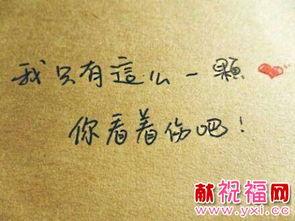 我只有這么一顆
你看着伤吧!
献祝福网
www.yxi.cc